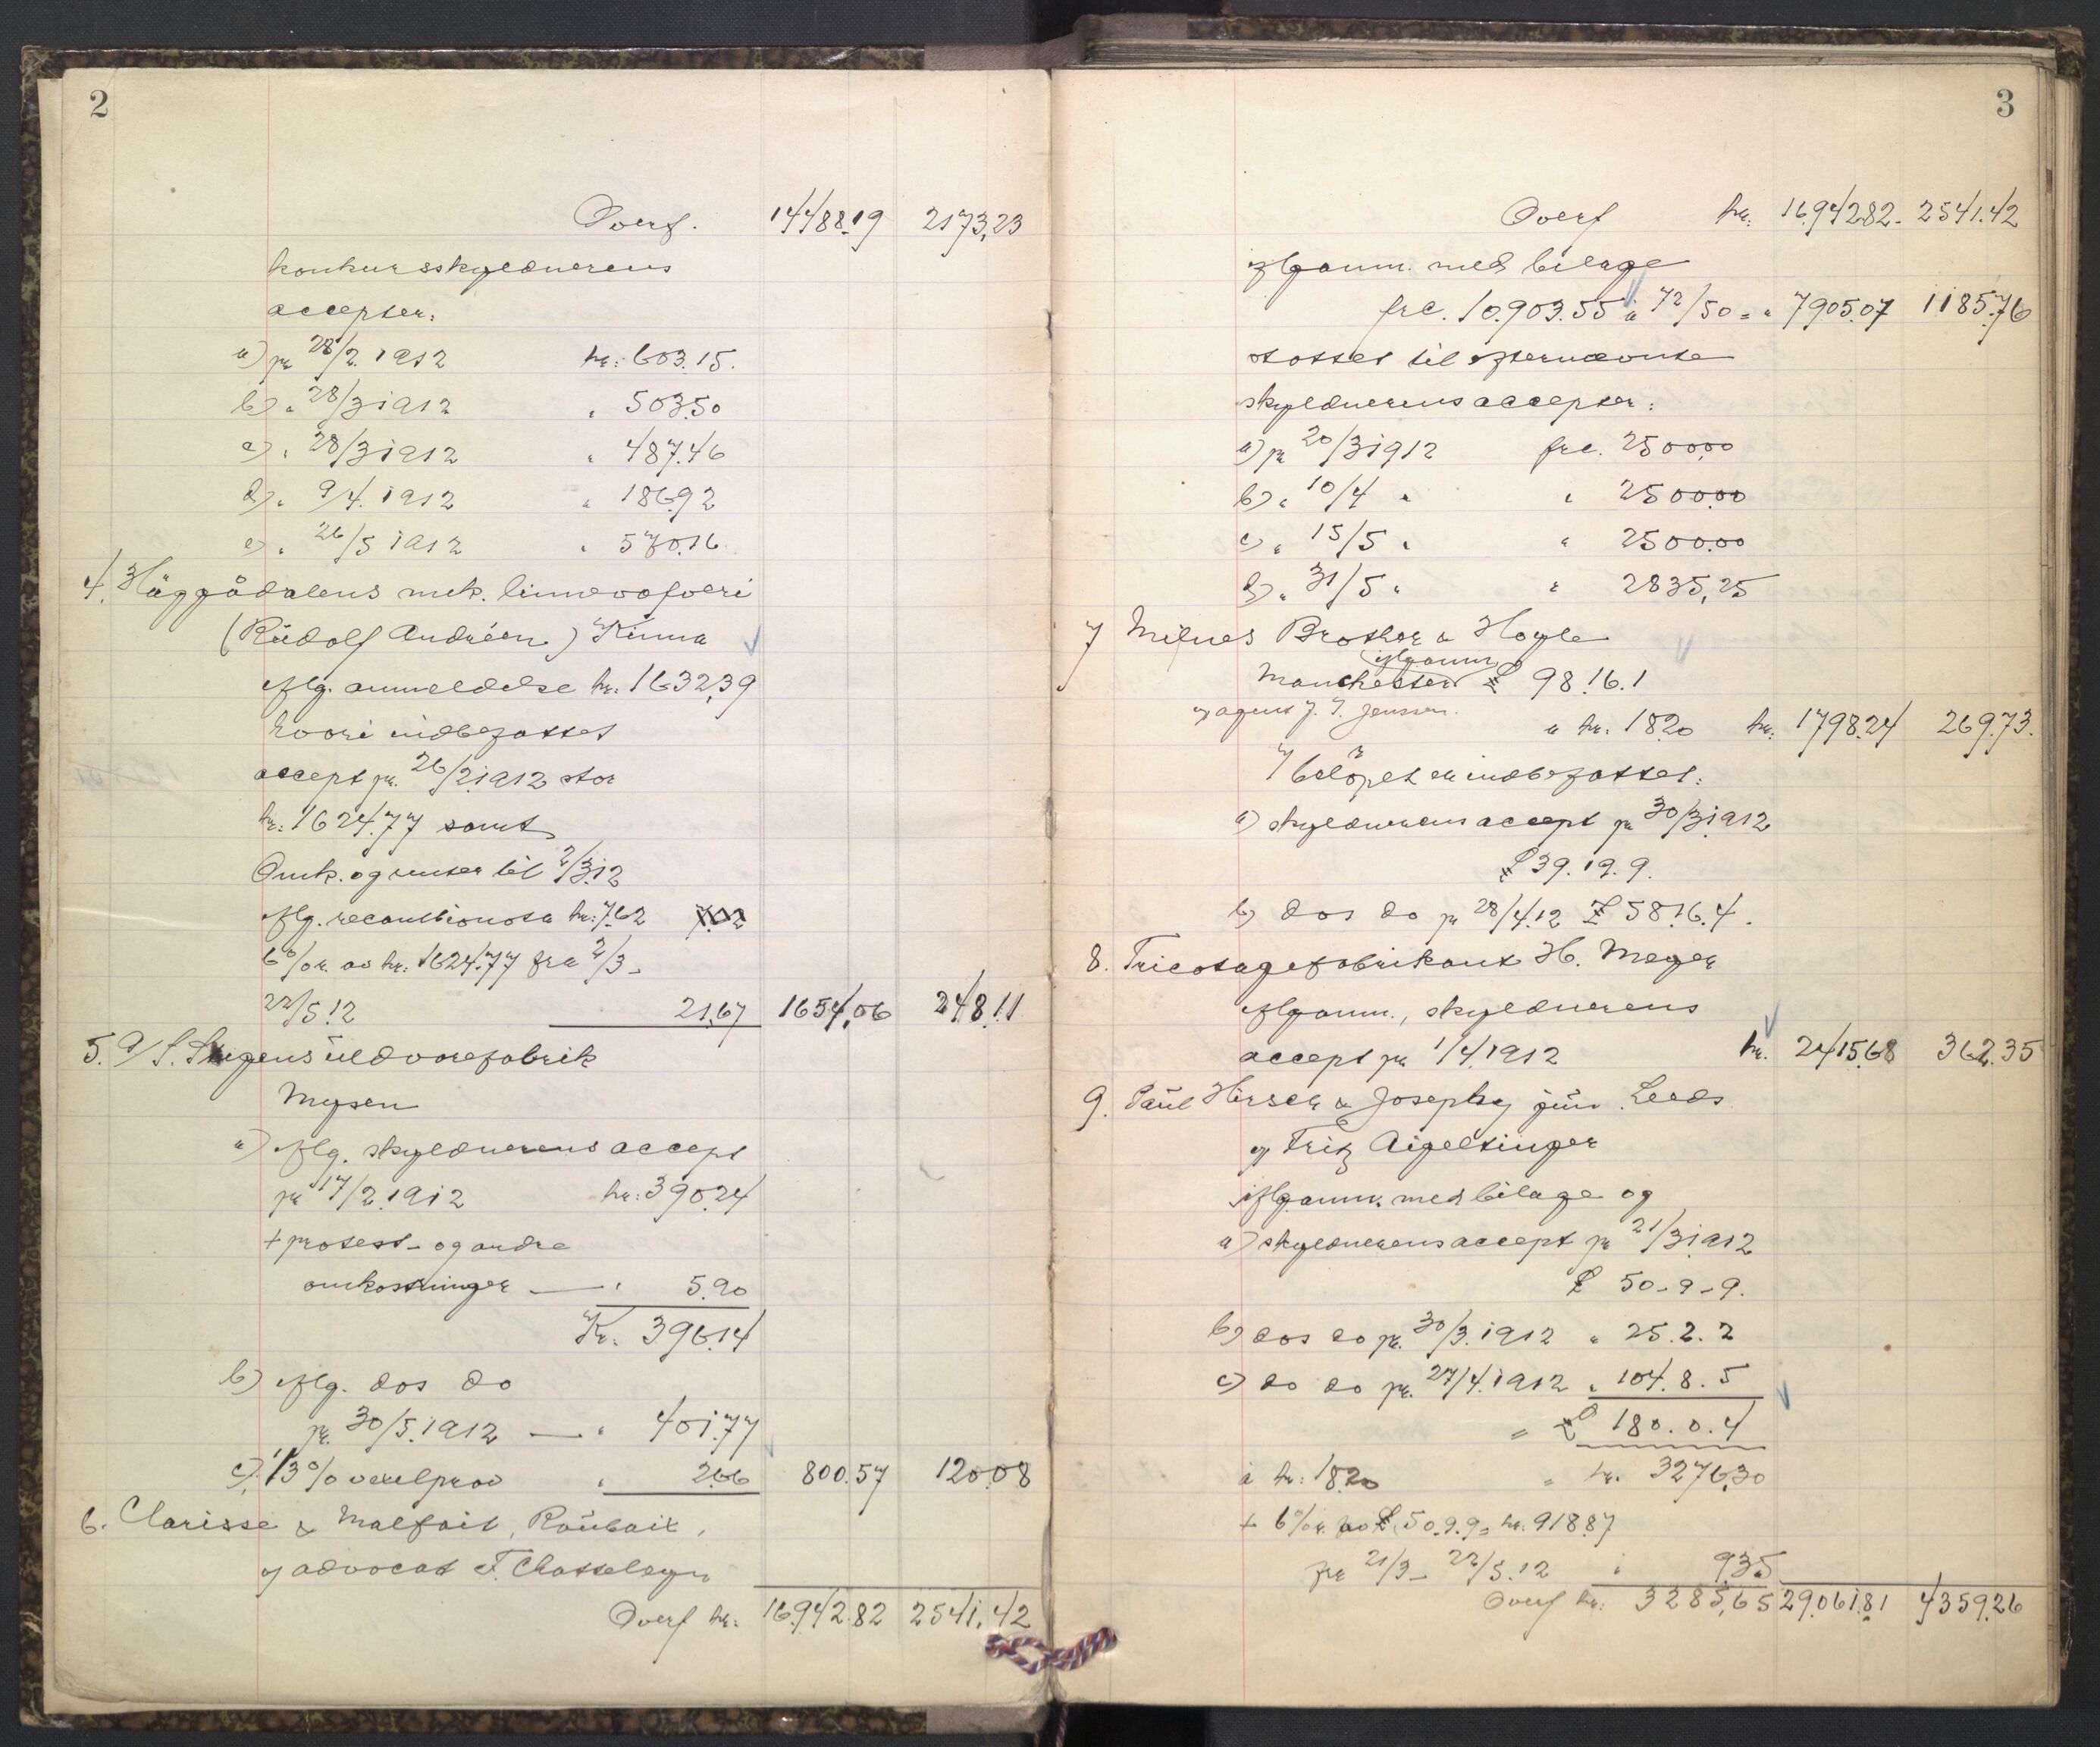 2
Overf. 14488.19 2173,23
konkursskyldnerens
accepter:
a) pr 28/2. 1912 kr: 603.15.
b) " 28/3 1912 " 503.50
c) " 28/3 1912 " 487.46
d) " 9/4. 1912 " 186.92
e) " 26/5 1912 " 570.16
4. Häggådalens mek. linnevæfveri
(Rudolf Andréen) Kinna
iflg. anmeldelse kr. 1632,39
hvori indbefattet
accept pr. 26/2 1912 stor
kr: 1624.77 samt
Omk. og renter til 2/3.12
iflg. recambionota kr: 7.62
6% r. av kr: 1624.77 fra 2/3 -
22/5.12 21,67 1654,06 248.11
5. A/S. uldvarefabrik
Mysen
a) iflg. skyldnerens accept
pr 17/2.1912 kr: 390.24
+ protest- og andre
omkostninger — " 5.90
Kr. 396.14
b) iflg. dos do
pr. 30/5.1912 — " 401.77
c) 1/3% vexelprov " 2.66 800.57 120.08
6. Clarisse & Malfait, Roubaix,
v/ advocat F.
Overf kr. 16.942.82 2541,42
3
Overf kr. 16.942.82. 2541.42
iflg anm. med bilage
frc. 10.903.55 à 72/50 = " 7905.07 1185.76
støttet til efternævnte
skyldnerens accepter:
a) pr 20/3 1912 frc. 2500.00
b) " 10/4 " " 2500.00
c) " 15/5 " " 2500.00
d) " 31/5 " " 2835,25
7 Milnes Brother & Hoyle
iflg anm
Manchester £ 98.16.1
v/ agent J. J. Jenssen.
a kr. 18.20 kr. 1798.24 269.73.
I beløpet er indbefattet:
a) skyldnerens accept pr 30/3.1912
£ 39.19.9.
b) dos do pr 28/4.12 £ 58.16.4.
8. Tricotagefabrikant H. Meyer
iflg anm., skyldnerens
accept pr 1/4.1912 kr. 2415.68 362.35
9. Paul Hirsch & Josephy jun. Leeds
v/ Fritz Aigeltinger
iflg anm. med bilage og
a) skyldnerens accept pr 21/3.1912
£ 50-9-9.
b) dos do pr. 30/3.1912 " 25.2.2
c) do do pr. 27/4.1912 " 104.8.5
= £ 180.0.4
à kr: 18.20 = kr. 3276,30
+ 6% r. av £ 50.9.9 = kr. 918.87
fra 21/3 - 22/5.12 " 9.35
Overf kr: 3285,65 29.061.81 4359.26